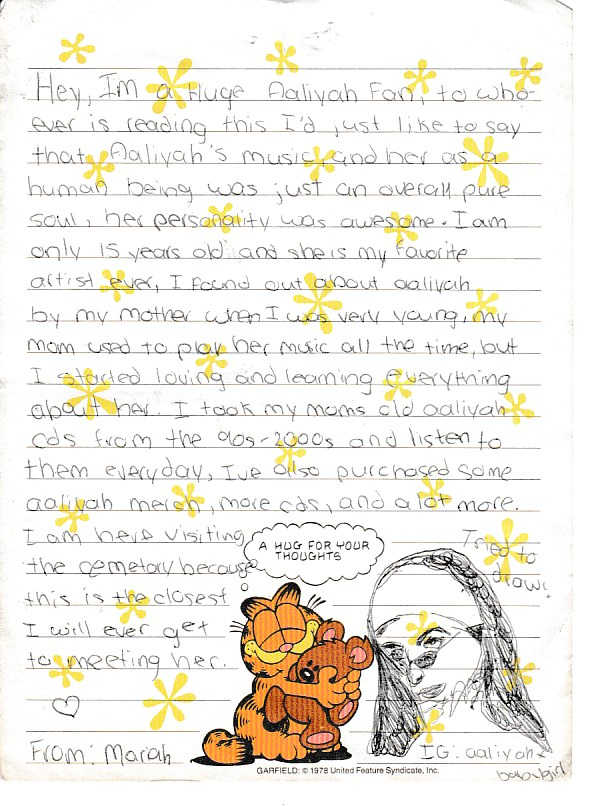 Hey, I'm a Huge Aaliyah Fan, to who-
ever is reading this I'd just like to say
that Aaliyah's music, and her as a
human being was just an overall pure
soul, her personality was awesome. I am
only 15 years old and she is my favorite
artist ever, I found out about aaliyah
by my mother when I was very young, my
mom used to play her music all the time, but
I started loving and learning everything
about her. I took my moms old aaliyah
cds from the 90s-2000s and listen to
them everyday, I've also purchased some
aaliyah merch, more cds, and a lot more.
I am here visiting
the cemetary because
this is the closest
I will ever get
to meeting her.
♡
From: Marah
A HUG FOR YOUR
THOUGHTS
Tried to
draw.
IG: aaliyah
babygirl
GARFIELD: © 1978 United Feature Syndicate, Inc.